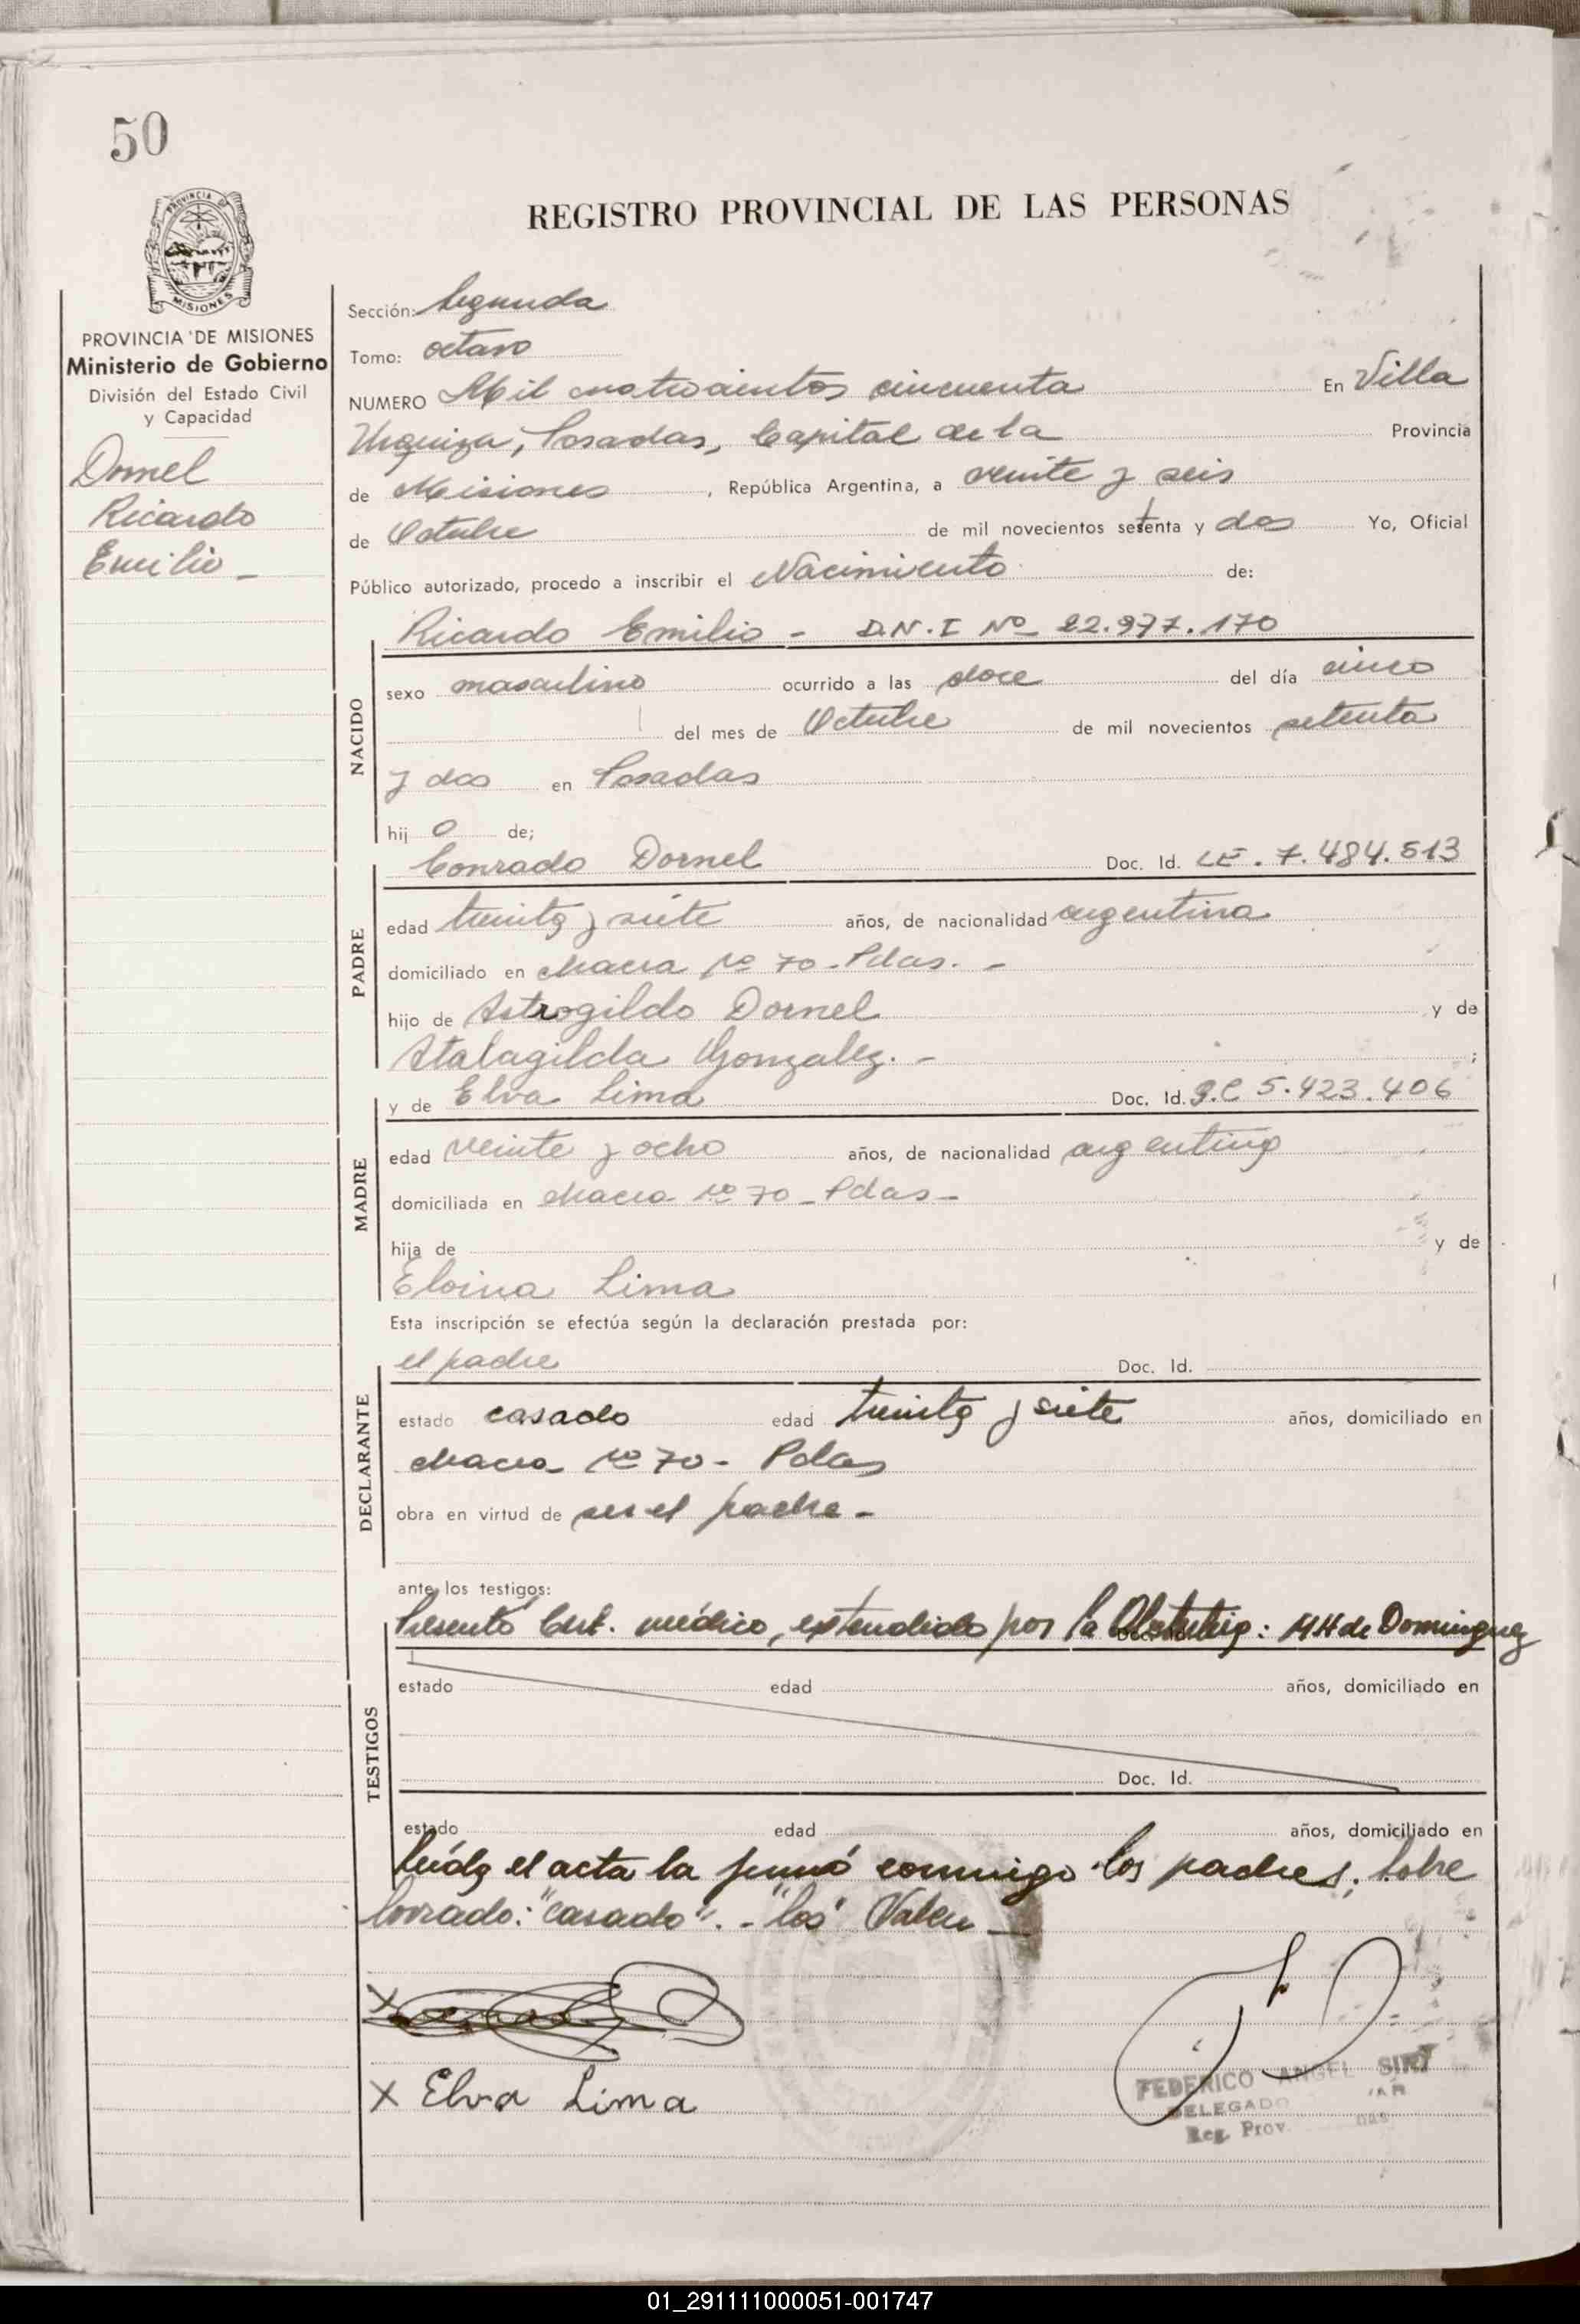 50
REGISTRO PROVINCIAL DE LAS PERSONAS
PROVINCIA DE MISIONES
PROVINCIA DE MISIONES
Ministerio de Gobierno
División del Estado Civil
y Capacidad
Dornel
Ricardo
Emilio -
Sección: Segunda
Tomo: octavo
NUMERO Mil cuatrocientos cincuenta En Villa
Urquiza, Posadas, Capital de la Provincia
de Misiones, República Argentina, a veinte y seis
de Octubre de mil novecientos setenta y dos Yo, Oficial
Público autorizado, procedo a inscribir el Nacimiento de:
Ricardo Emilio - D.N.I Nº 22.977.170
NACIDO
sexo masculino ocurrido a las doce del día cinco
del mes de Octubre de mil novecientos setenta
y dos en Posadas
hij o de;
Conrado Dornel Doc. Id. LE. 7.484.513
PADRE
edad treinta y siete años, de nacionalidad argentina
domiciliado en chacra Nº 70 - Pdas. -
hijo de Astrogildo Dornel y de
Atalagilda Gonzalez. - ;
y de Elva Lima Doc. Id. 5.423.406
MADRE
edad veinte y ocho años, de nacionalidad argentina
domiciliada en chacra Nº 70 - Pdas -
hija de y de
Eloina Lima
Esta inscripción se efectúa según la declaración prestada por:
el padre Doc. Id.
DECLARANTE
estado casado edad treinta y siete años, domiciliado en
chacra Nº 70 - Pdas
obra en virtud de ser el padre -
ante los testigos:
Presentó Cert. médico, extendido por la Obstetriz: M H de Dominguez
TESTIGOS
estado edad años, domiciliado en
Doc. Id.
estado edad años, domiciliado en
Leída el acta la firmó conmigo los padres; Sobre
borrado: "casado". - "los" Valen
x
x Elva Lima
FEDERICO ANGEL
DELEGADO
Reg. Prov.
01_291111000051-001747